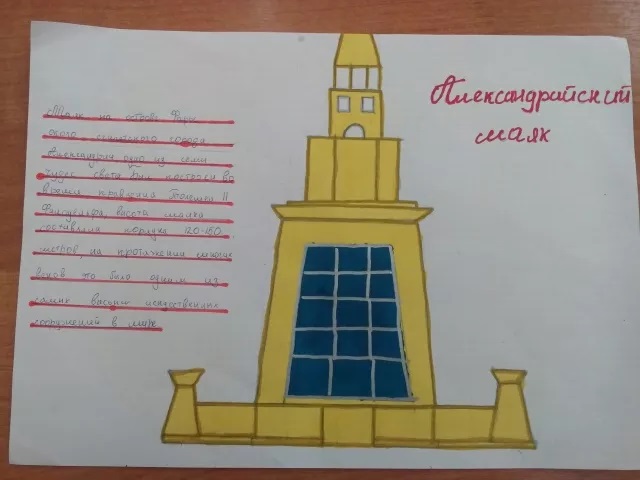 Александрийский
маяк
Маяк на острове Фарос
около египетского города
Александрия одно из семи
чудес света был построен во
время правления Птолемея II
высота маяка
составляла порядка 120-150
метров, на протяжении многих
веков то было одним из
самых высоких искусственных
сооружений в мире